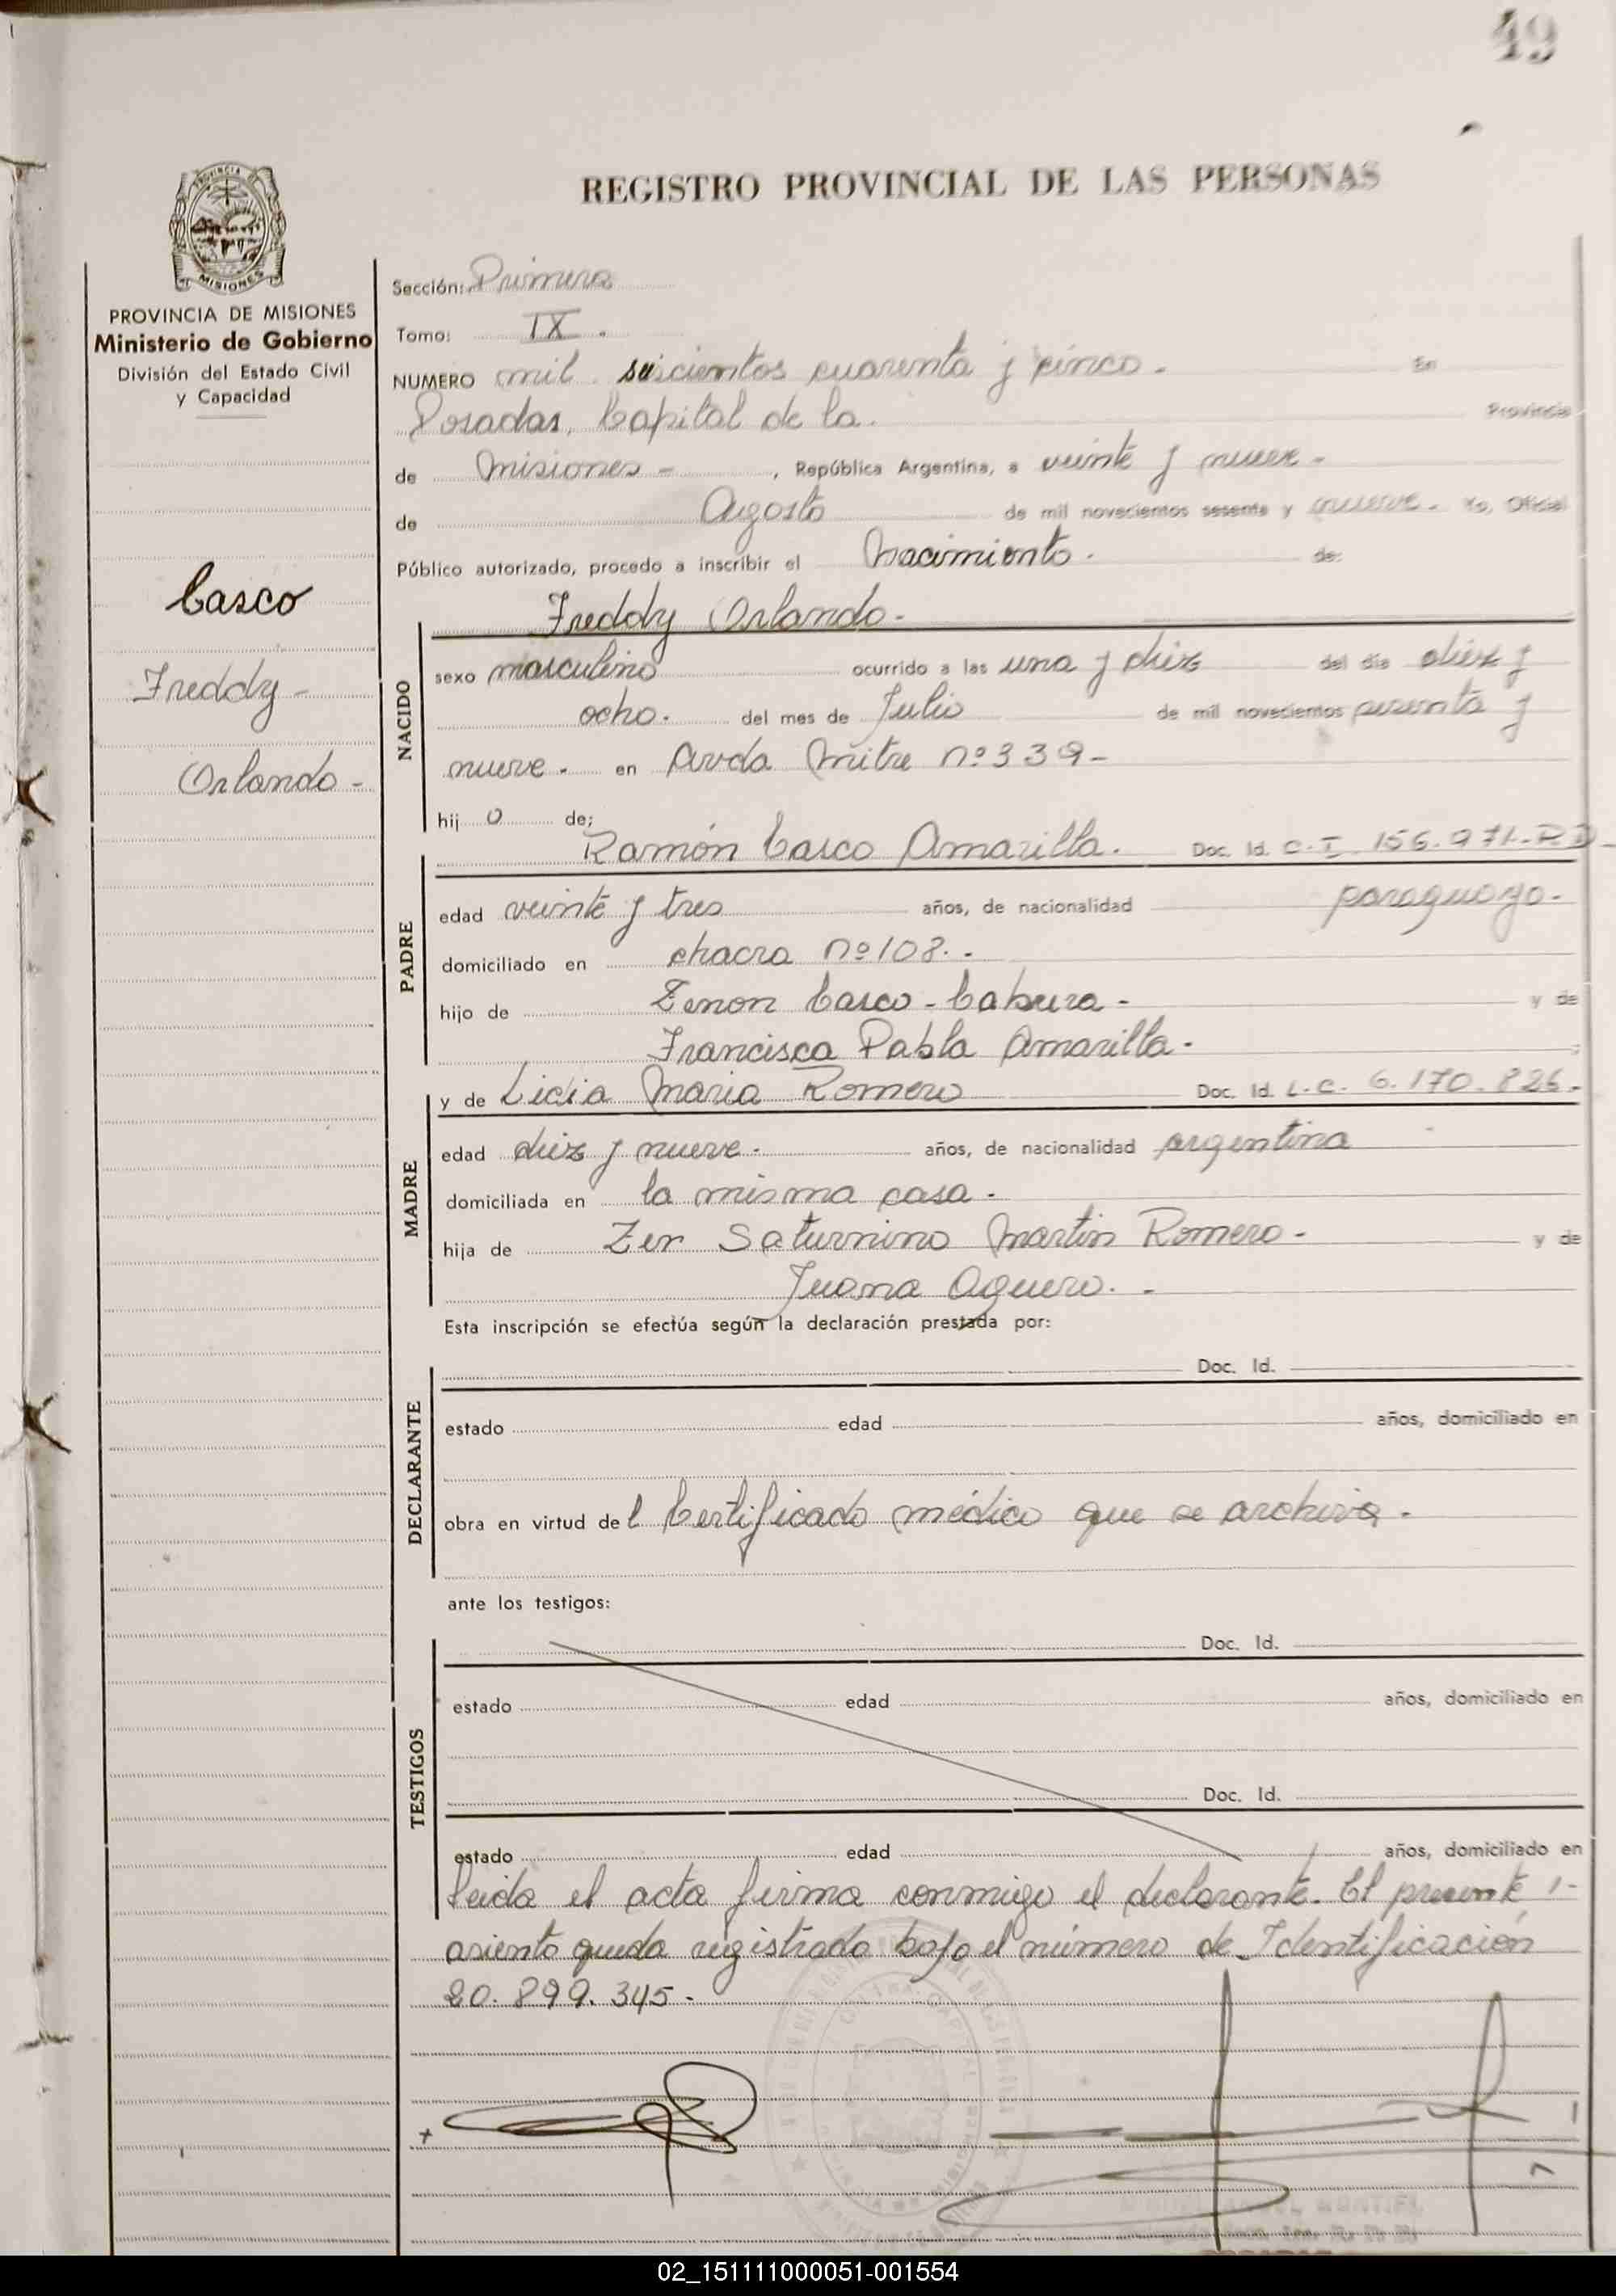 49
REGISTRO PROVINCIAL DE LAS PERSONAS
PROVINCIA DE MISIONES
Ministerio de Gobierno
División del Estado Civil
y Capacidad
Casco
Freddy -
Orlando -
Sección: Primera
Tomo: IX .
NUMERO mil seiscientos cuarenta y cinco . En
Posadas, Capital de la . Provincia
de Misiones - , República Argentina, a veinte y nueve -
de Agosto de mil novecientos sesenta y nueve . Yo, Oficial
Público autorizado, procedo a inscribir el Nacimiento . de:
Freddy Orlando -
NACIDO
sexo masculino ocurrido a las una y diez del día diez y
ocho . del mes de Julio de mil novecientos sesenta y
nueve . en Avda Mitre nº 339 -
hij o de;
Ramón Casco Amarilla . Doc. Id. C. I. 156.971 - P.D -
PADRE
edad veinte y tres años, de nacionalidad paraguayo -
domiciliado en chacra nº 108 . -
hijo de Zenon Casco - Cabura - y de
Francisca Pabla Amarilla -
y de Licia Maria Romero Doc. Id. L. C. 6.170.826 -
MADRE
edad diez y nueve . años, de nacionalidad argentina
domiciliada en la misma casa -
hija de Zer Saturnino Martin Romero - y de
Juana Aguero . -
Esta inscripción se efectúa según la declaración prestada por:
Doc. Id.
DECLARANTE
estado edad años, domiciliado en
obra en virtud de l Certificado médico que se archiva .
ante los testigos:
Doc. Id.
TESTIGOS
estado edad años, domiciliado en
Doc. Id.
estado edad años, domiciliado en
Leida el acta firma conmigo el declarante . El presente
asiento queda registrado bajo el número de Identificación
20.899.345 -
02_151111000051-001554